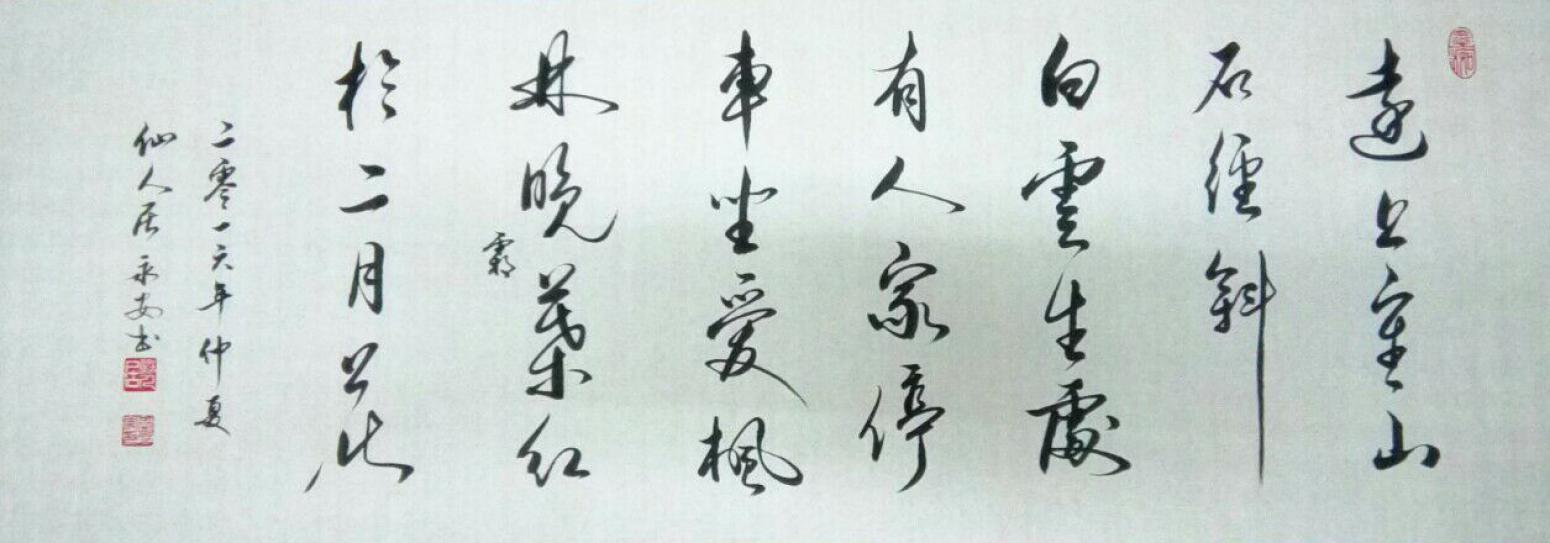 遠上寒山
石徑斜
白雲生處
有人家停
車坐愛楓
林晚葉紅
霜
於二月花
二零一六年仲夏
仙人居永安书